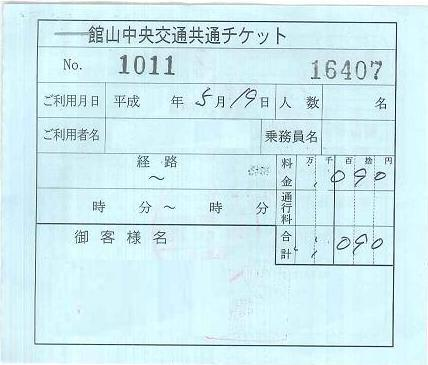 館山中央交通共通チケット
No. 1011 16407
ご利用月日 平成 年 5月19日 人数 名
ご利用者名 乗務員名
経路 料金 万 千 百 拾 円
~ 090
時 分~ 時 分 通行料
御客様名 合計 090